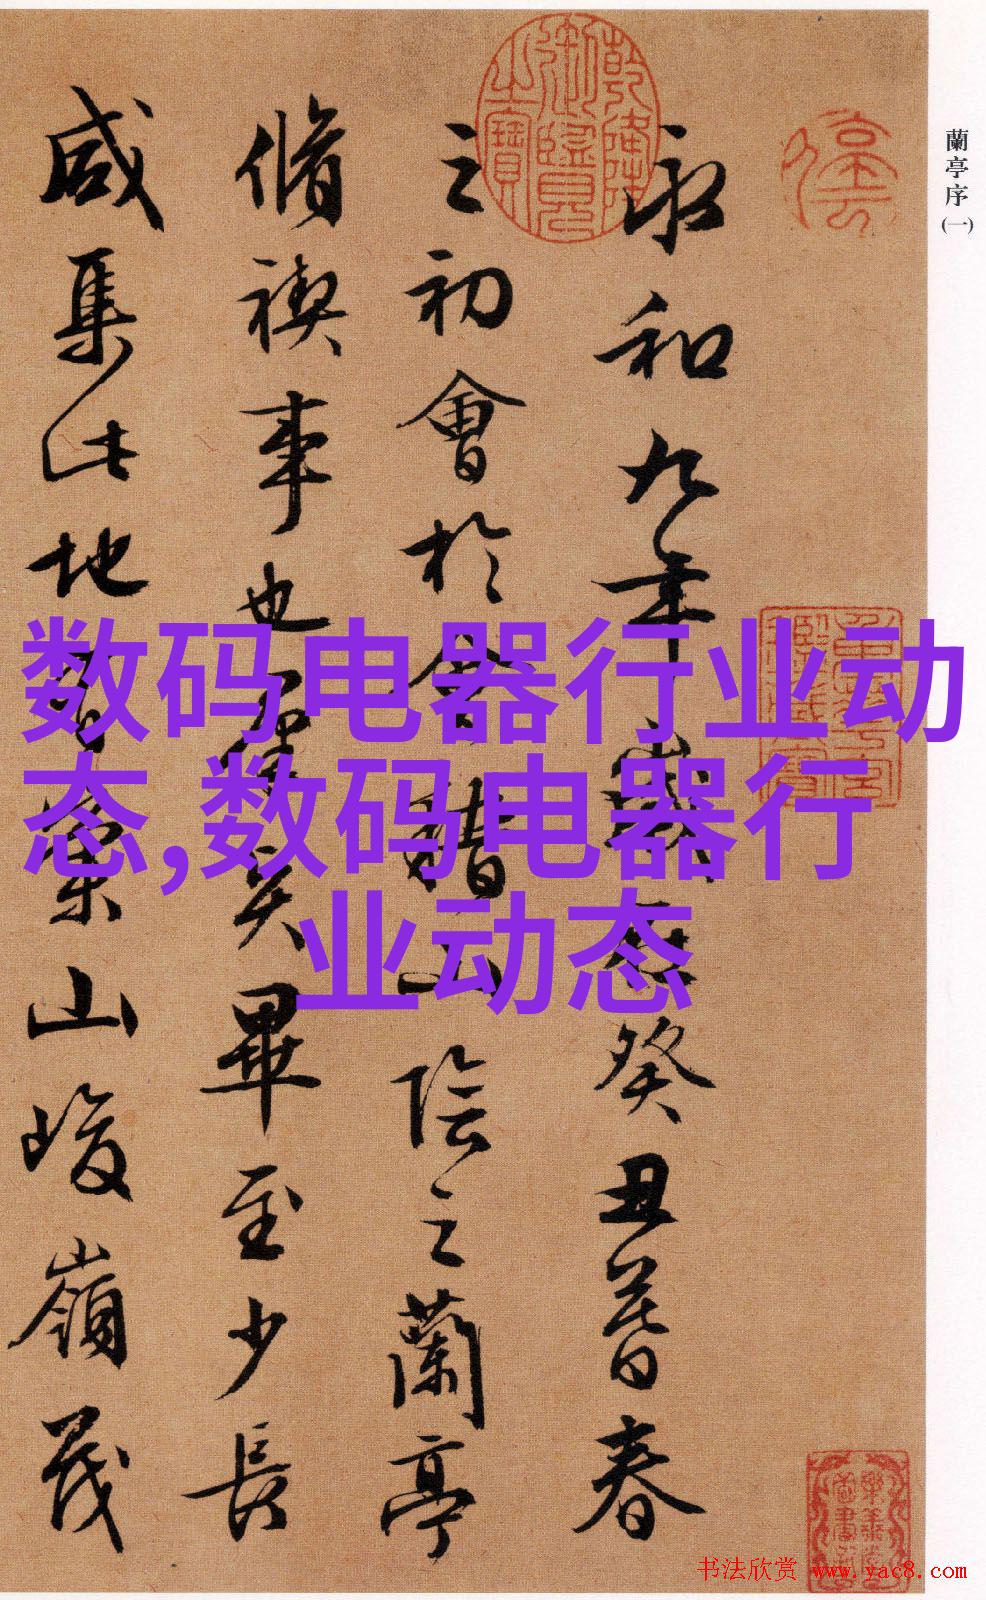 蘭亭序(一)
永和九年歲在癸丑暮春
之初會於會稽山陰之蘭亭
脩禊事也羣賢畢至少長
咸集此地有崇山峻嶺茂
乾隆御覽之寶
数码电器行业动
态,数码电器行
业动态
书法欣赏 www.yac8.com